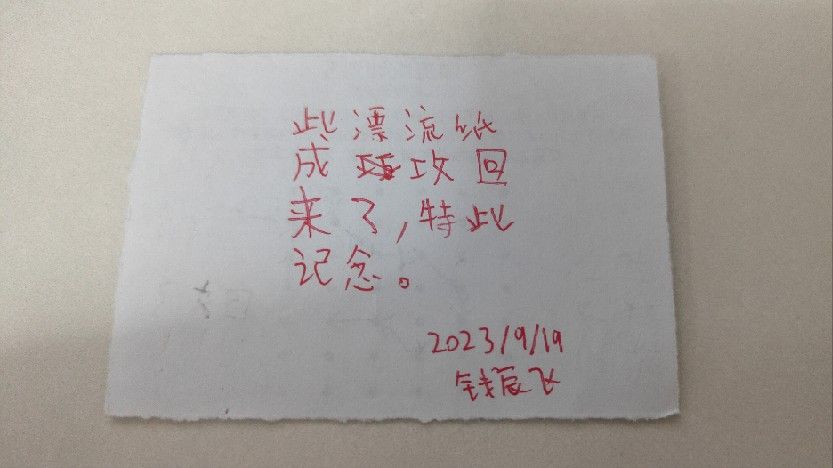 此漂流纸
成功回
来了,特此
记念。
2023/9/19
钱辰飞